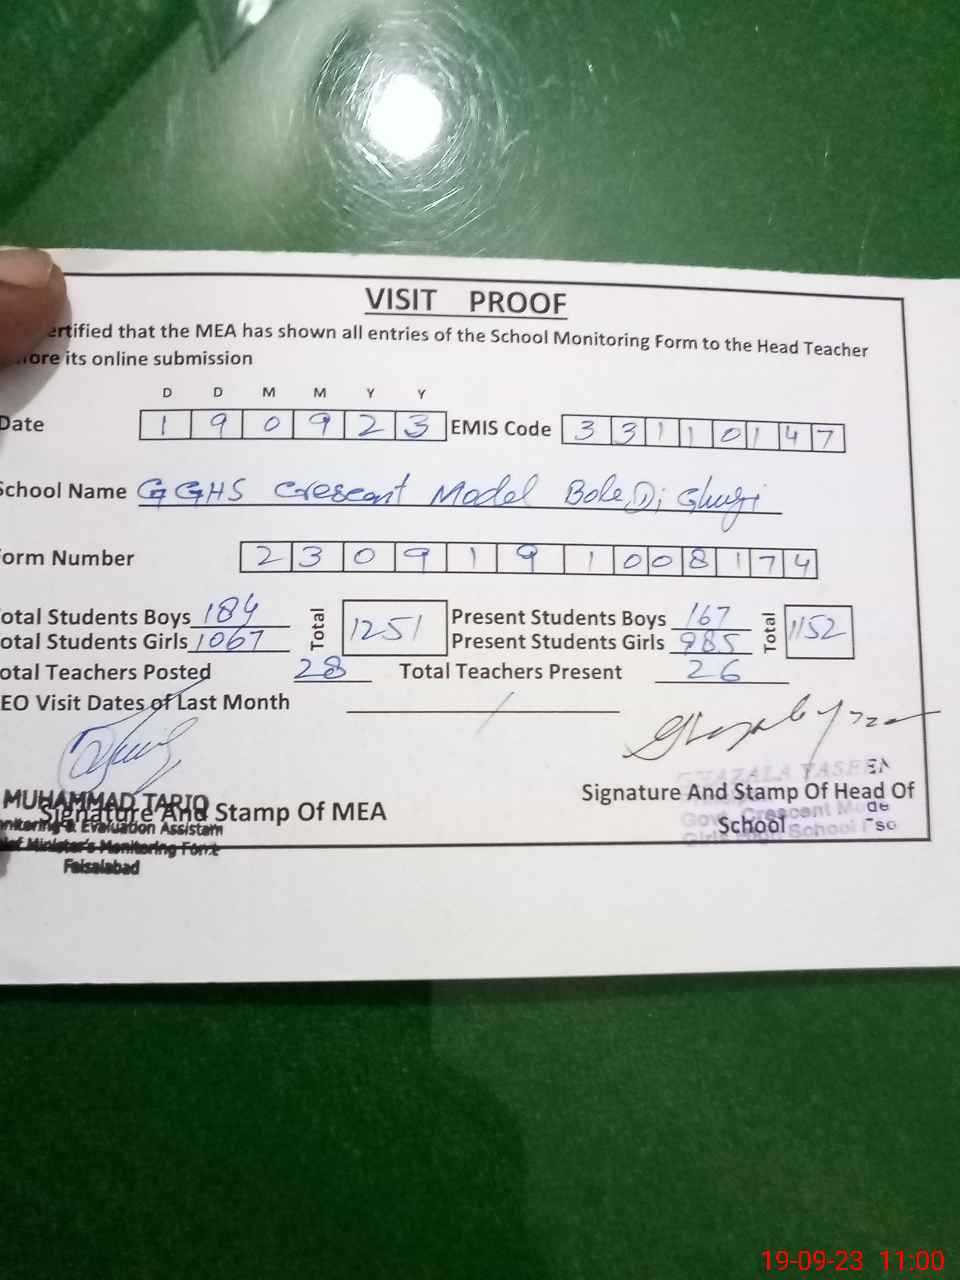 VISIT PROOF
ertified that the MEA has shown all entries of the School Monitoring Form to the Head Teacher
ore its online submission
D D M M Y Y
Date 1 9 0 9 2 3 EMIS Code 3 3 1 1 0 1 4 7
School Name GGHS Crescent Model Bole Di Ghugi
orm Number 2 3 0 9 1 9 1 0 0 8 1 7 4
otal Students Boys 184 Total 1251 Present Students Boys 167 Total 1152
otal Students Girls 1067 Present Students Girls 985
otal Teachers Posted 28 Total Teachers Present 26
EO Visit Dates of Last Month /
GHAZALA YASEEN
MUHAMMAD TARIQ
Signature And Stamp Of MEA
Signature And Stamp Of Head Of
School
nitoring & Evaluation Assistant
Gov. Crescent Mode
Girls High School
ief Minister's Monitoring Force
Faisalabad
19-09-23 11:00